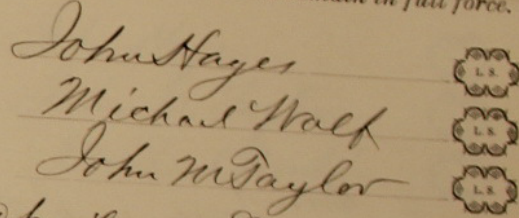 in full force.
John Hayes L. S.
Michael Wolf L. S.
John M Taylor L. S.